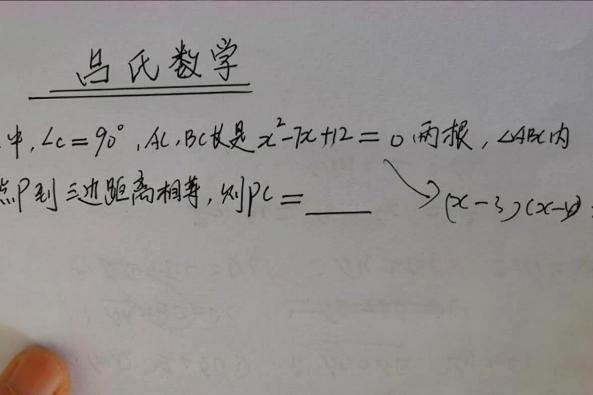 吕氏数学
中,∠C=90°,AC,BC长是x²-7x+12=0两根,△ABC内
点P到三边距离相等,则PC=____
(x-3)(x-4)